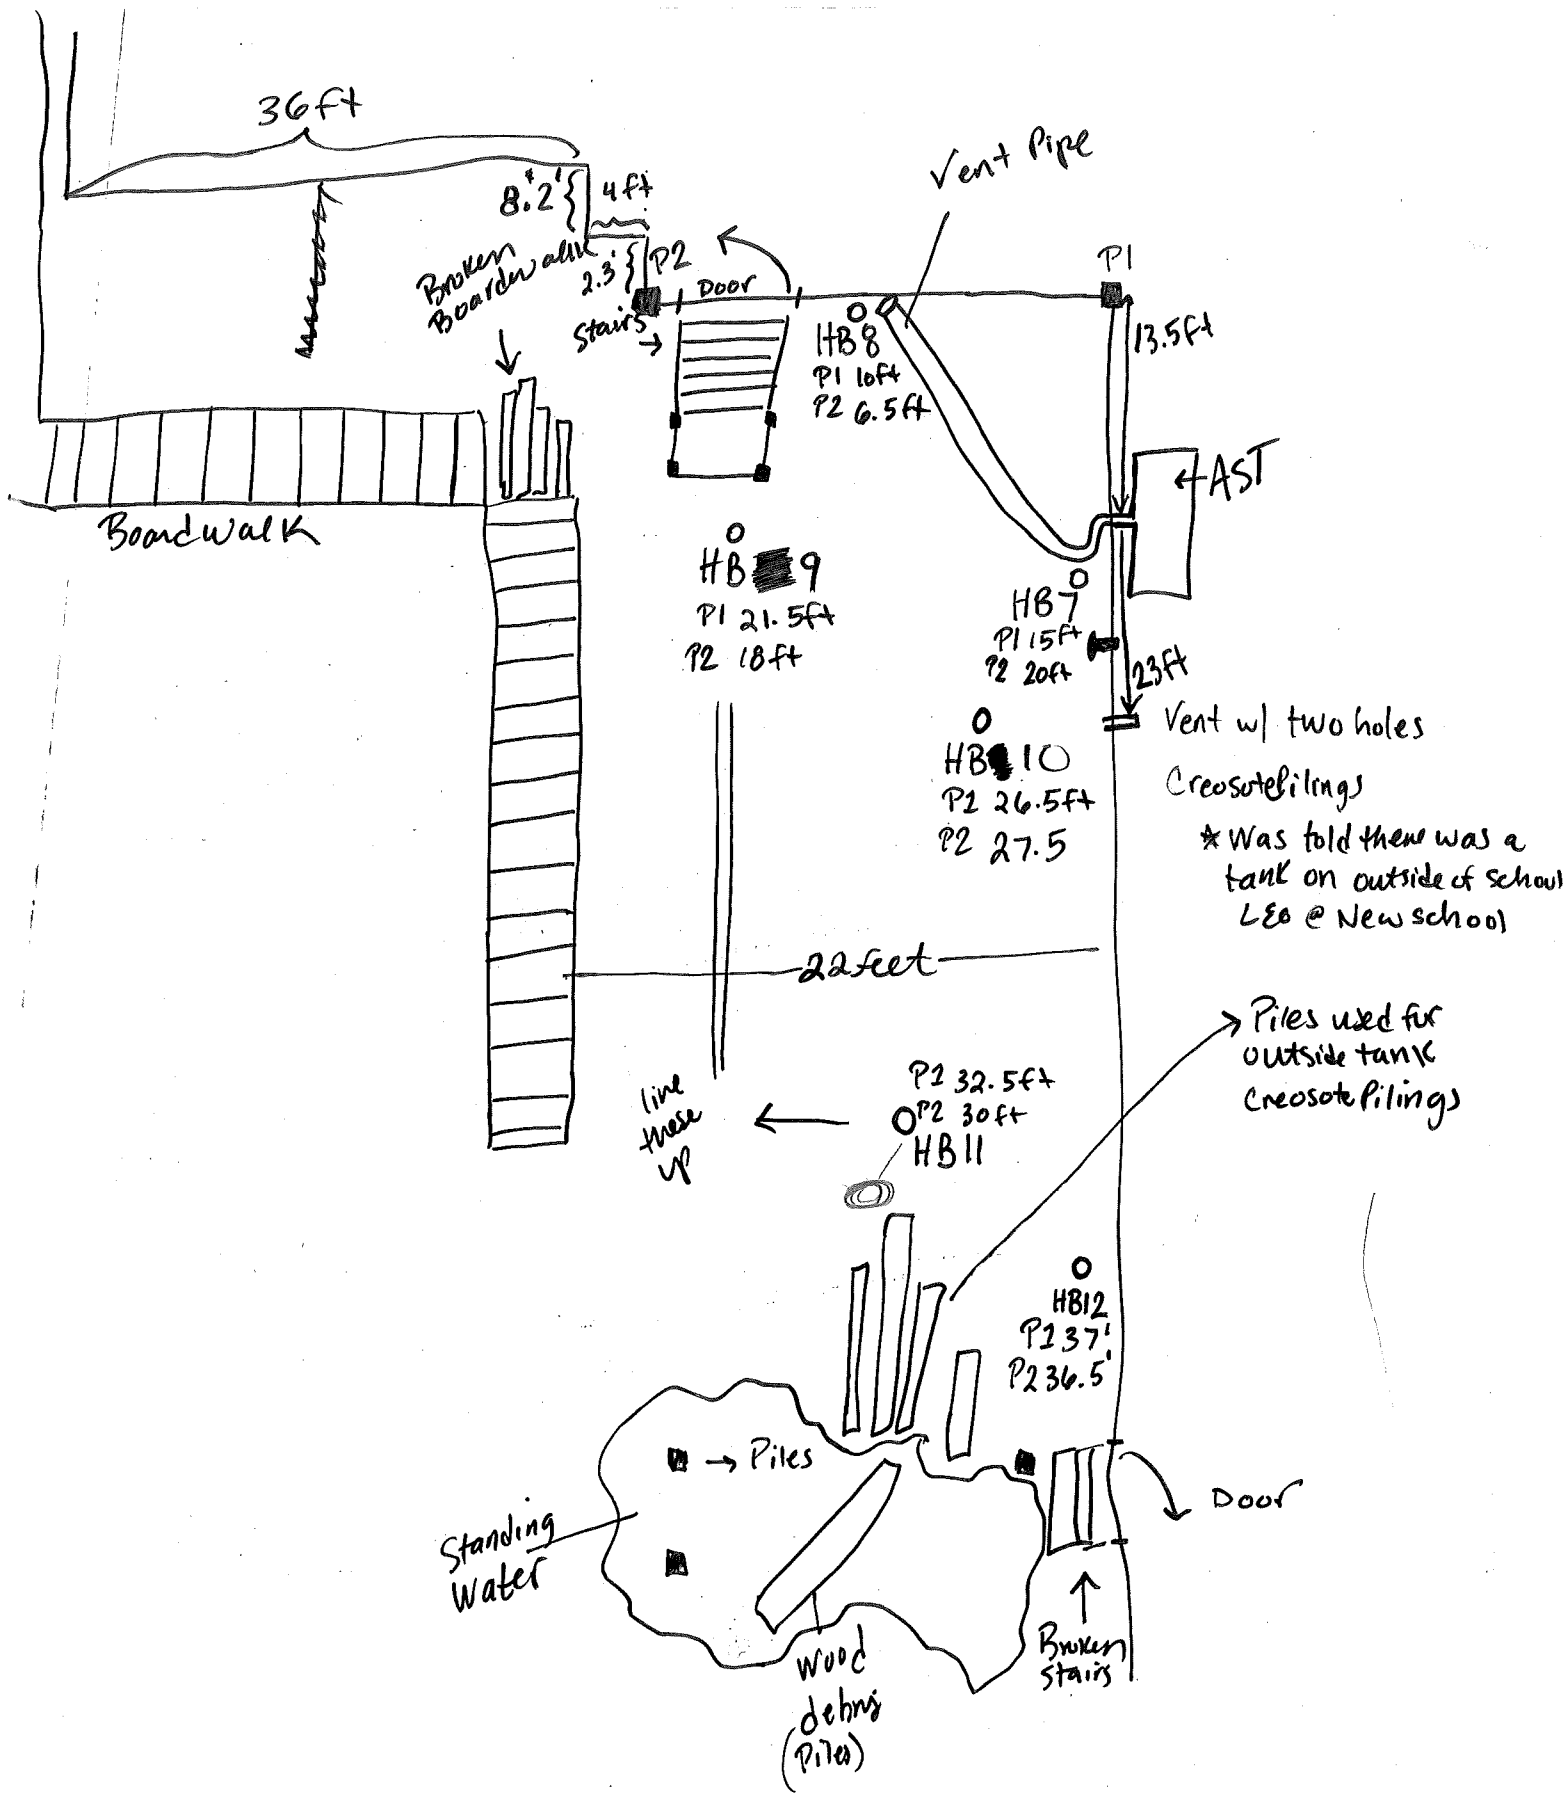 36ft
Vent Pipe
8.2'
4ft
Broken
Boardwalk
2.3'
P2
Door
P1
Stairs
HB8
P1 10ft
P2 6.5ft
13.5ft
AST
Boardwalk
HB 9
P1 21.5ft
P2 18ft
HB7
P1 15ft
P2 20ft
23ft
Vent w/ two holes
HB 10
P1 26.5ft
P2 27.5
Creosote Pilings
* Was told there was a
tank on outside of school
LEO @ New school
22 feet
Piles used for
outside tank
Creosote Pilings
line
these
up
P1 32.5ft
P2 30ft
HB11
HB12
P1 37'
P2 36.5'
Piles
Door
Standing
Water
Broken
stairs
Wood
debris
(Piles)